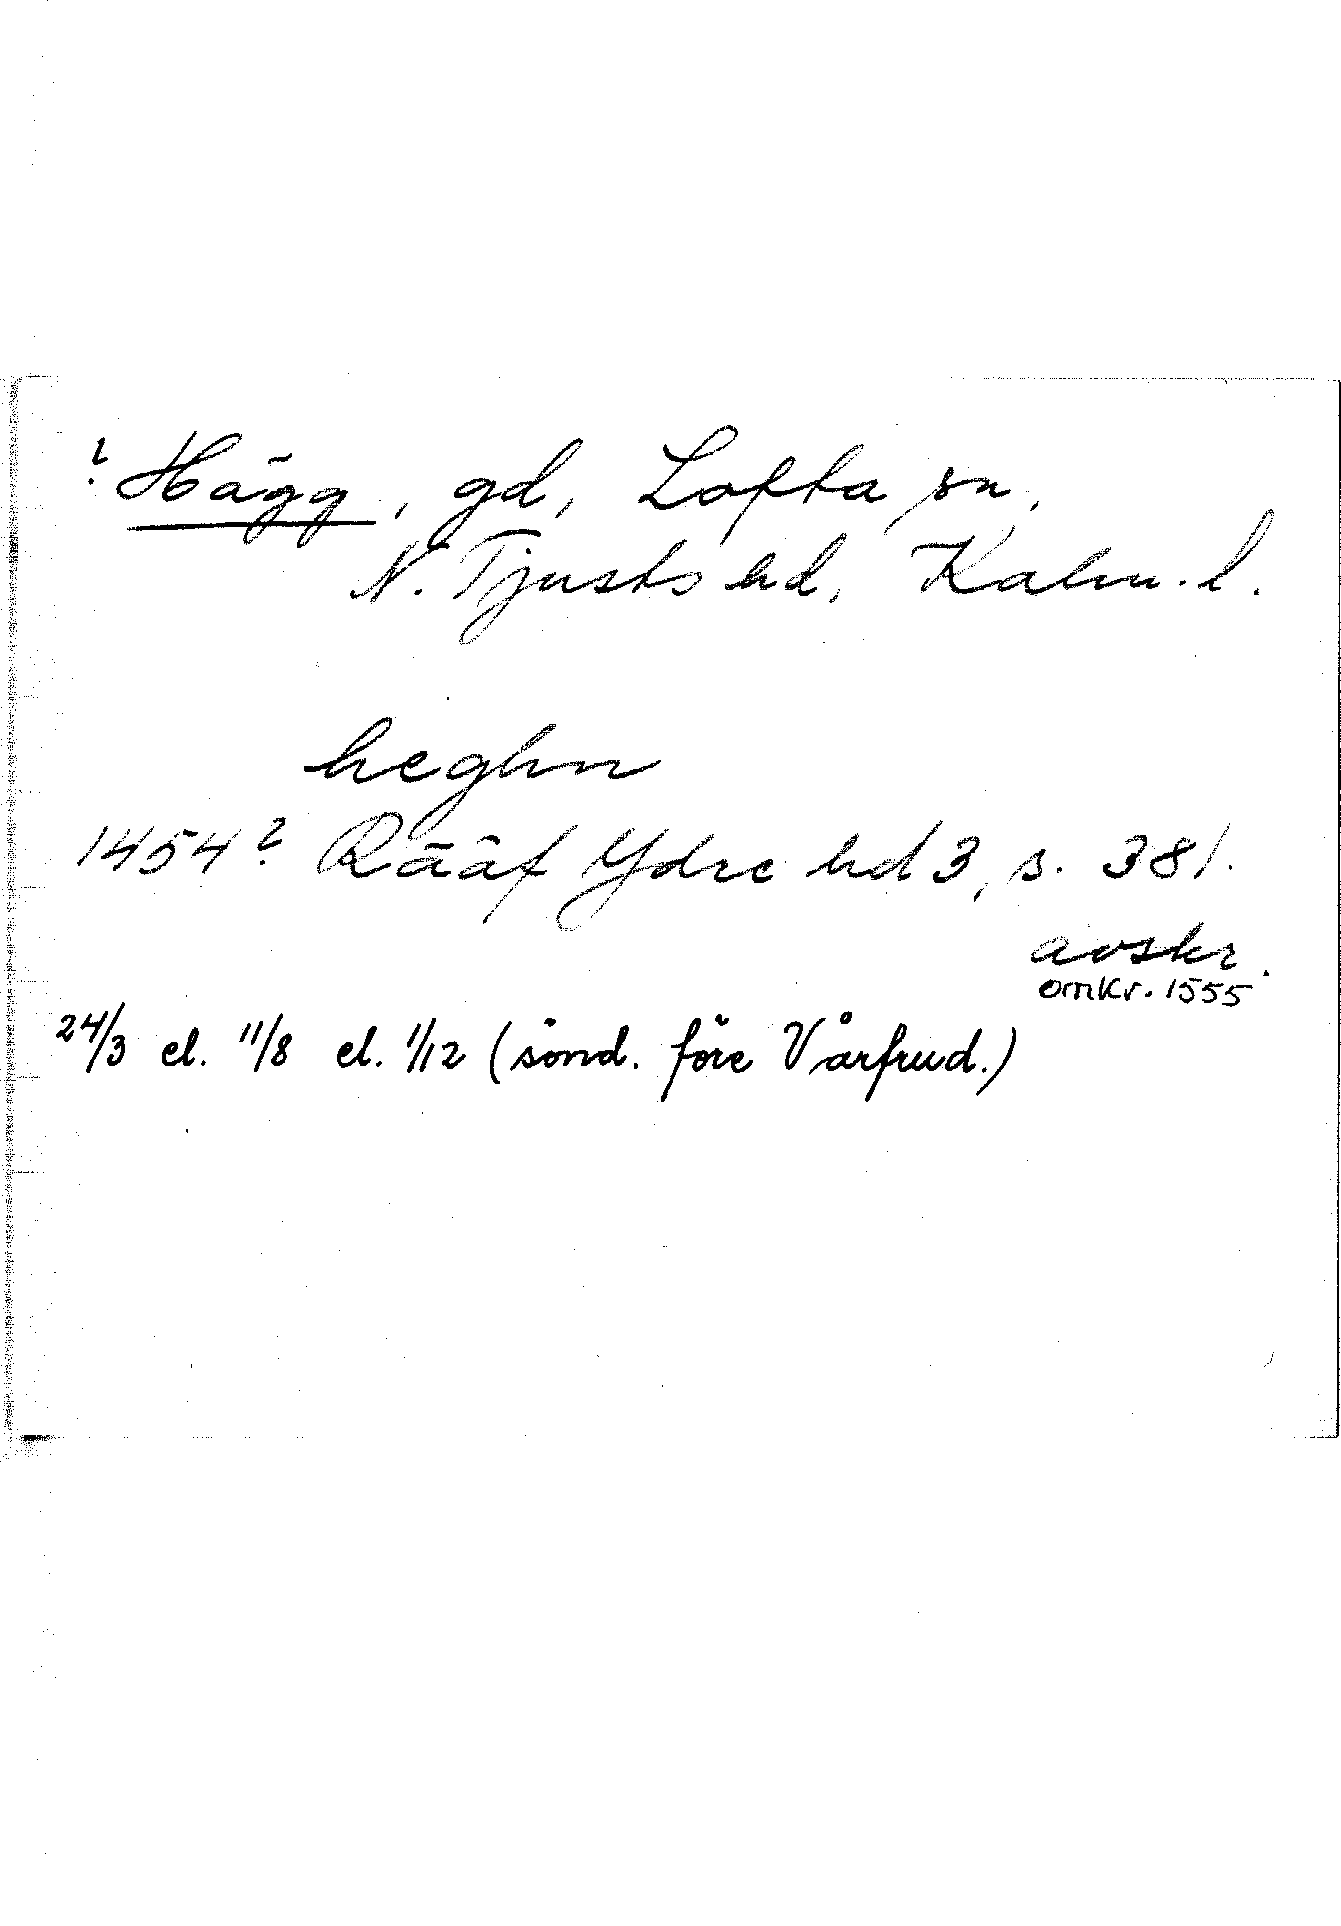 ? Hägg, gd, Lofta sn,
N. Tjusts hd, Kalm. l.
heghn
1454? Rääf Ydre hd 3, s. 381.
avskr.
omkr. 1555
24/3 el. 11/8 el. 1/12 (sönd. före Vårfrud.)